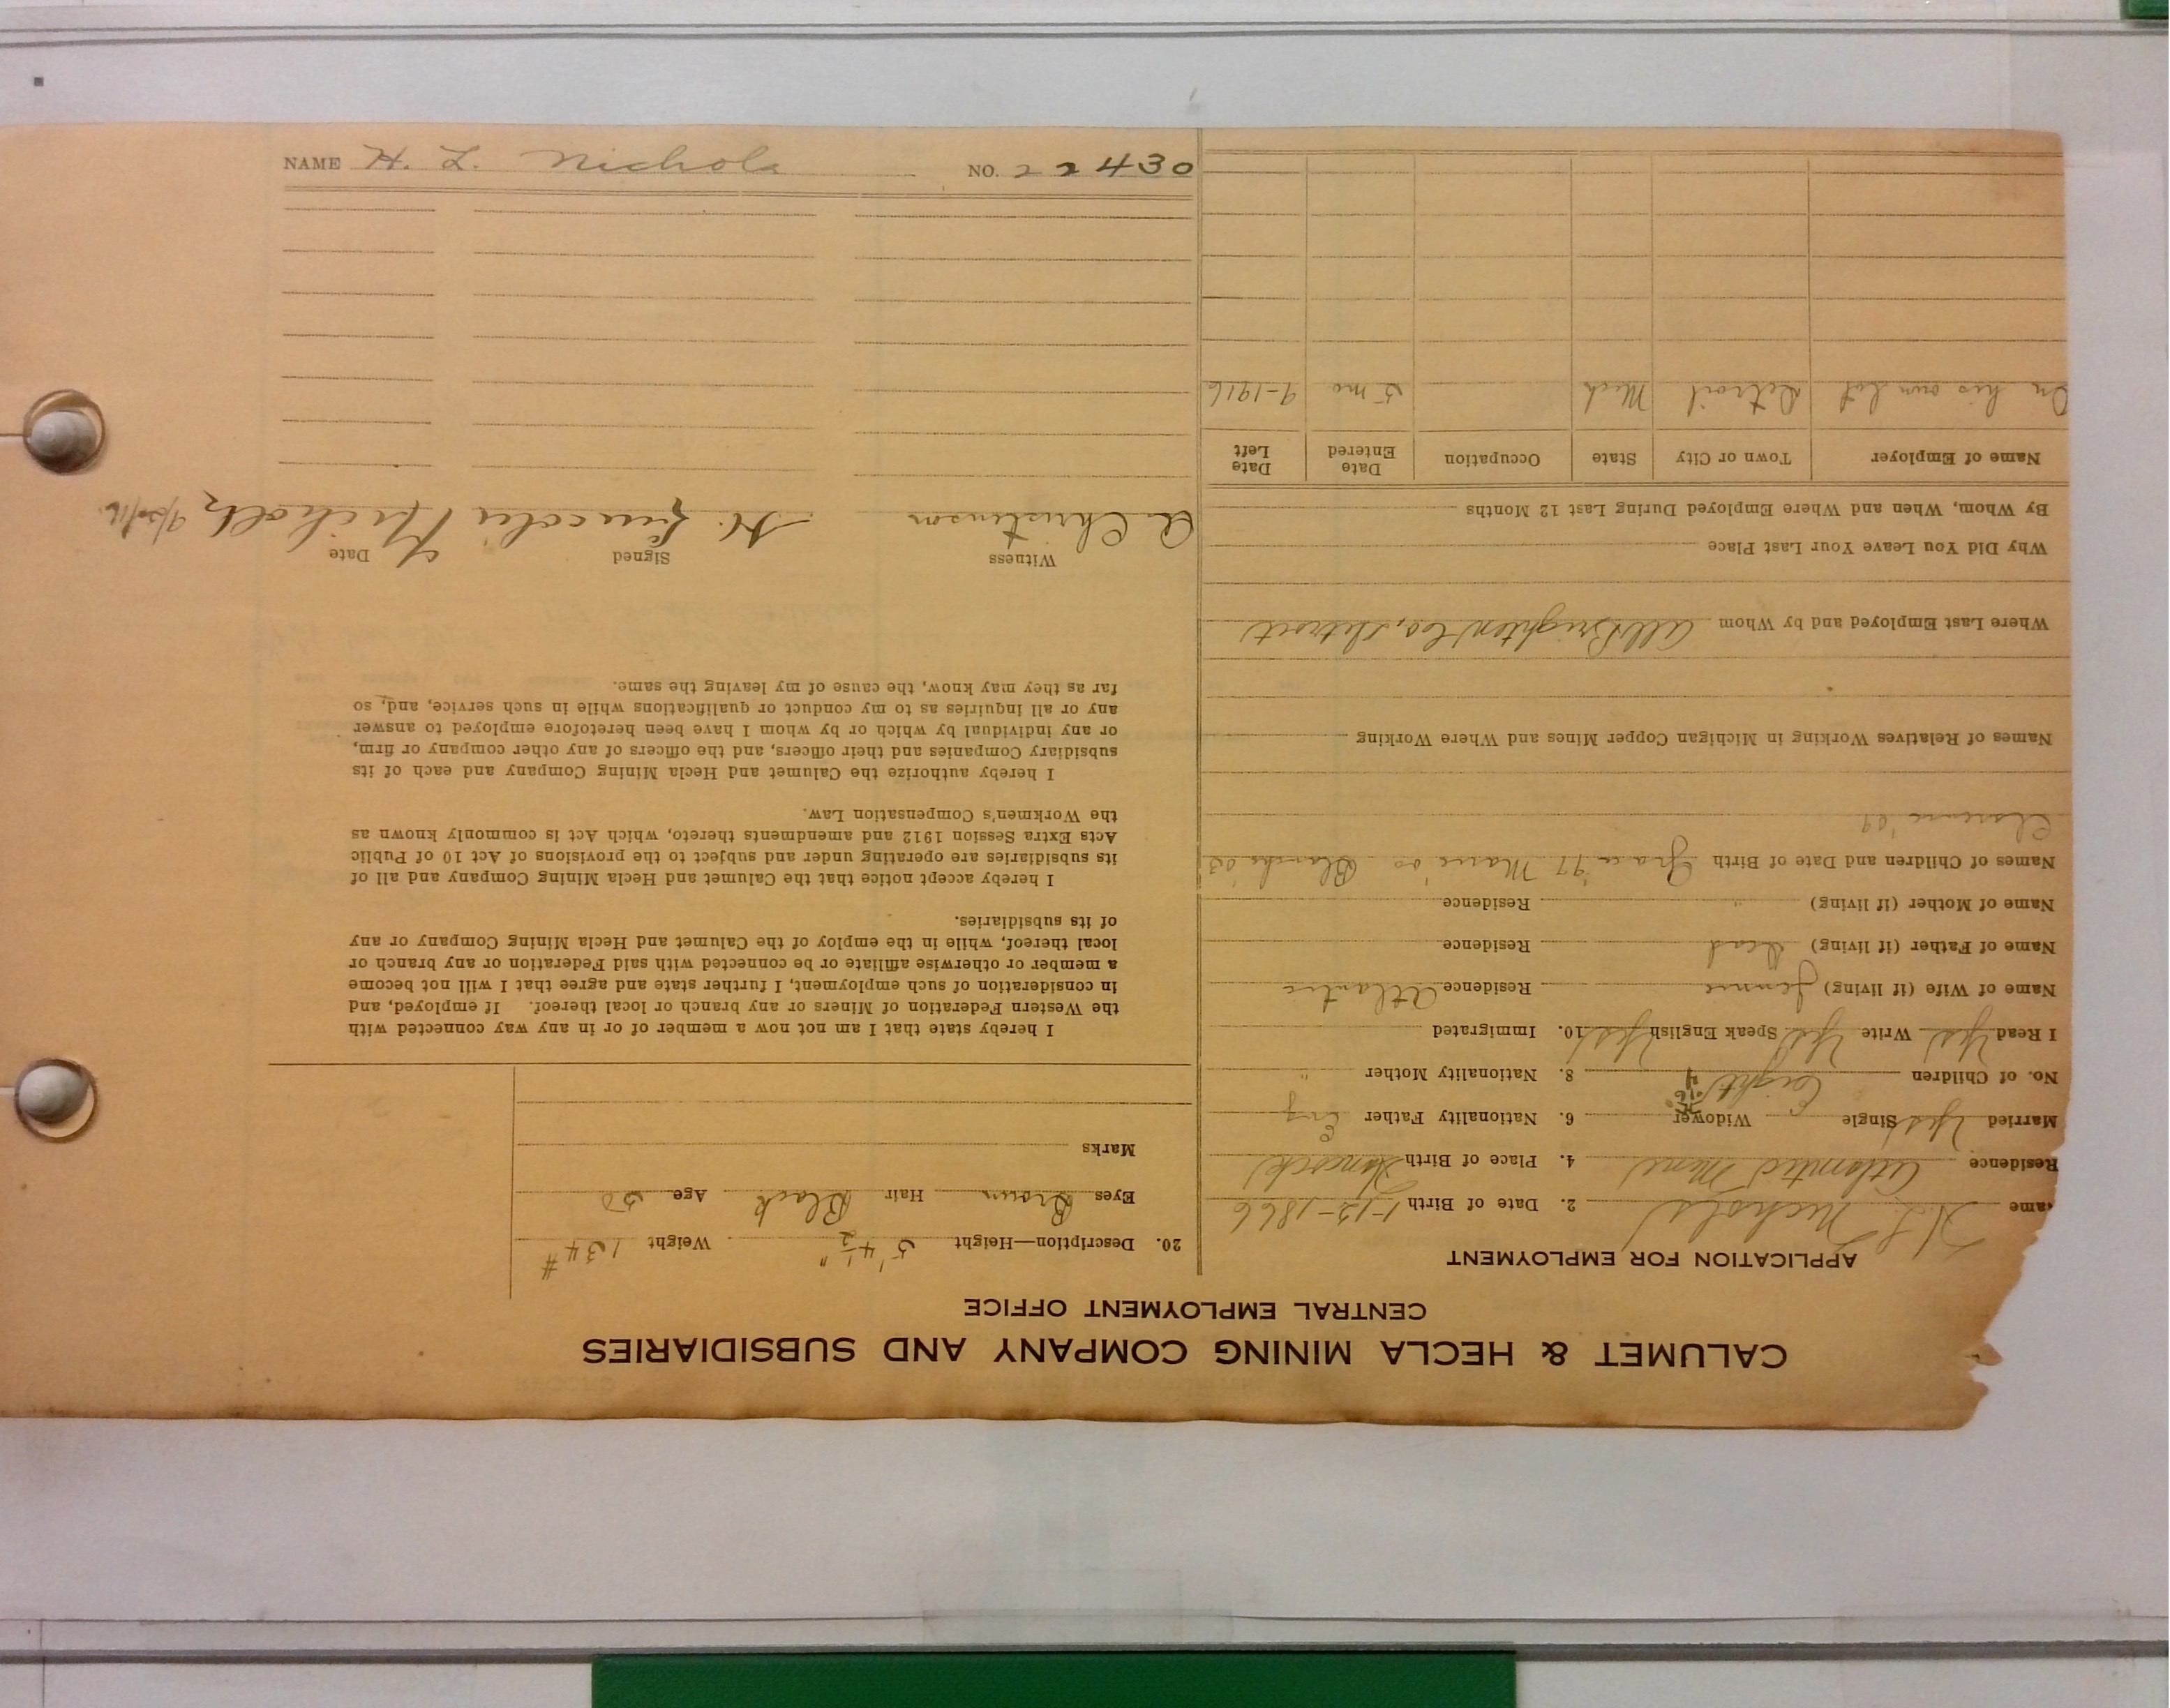 CALUMET & HECLA MINING COMPANY AND SUBSIDIARIES
CENTRAL EMPLOYMENT OFFICE
APPLICATION FOR EMPLOYMENT
ame H L Nichols 2. Date of Birth 1-12-1866
Residence Atlantic Mine 4. Place of Birth Hancock
Married Yes Single Widower 6. Nationality Father Eng
No. of Children Eight 4 8. Nationality Mother "
I Read Yes Write Yes Speak English Yes 10. Immigrated
Name of Wife (if living) Jennie Residence Atlantic
Name of Father (if living) Dead Residence
Name of Mother (if living) " Residence
Names of Children and Date of Birth Grace '97 Marie '00 Blanche '03
Clarence '09
Names of Relatives Working in Michigan Copper Mines and Where Working
Where Last Employed and by Whom Co, Detroit
Why Did You Leave Your Last Place
By Whom, When and Where Employed During Last 12 Months
Name of Employer Town or City State Occupation Date Entered Date Left
On his own lot Detroit Mich 5 mo 9-1916
20. Description—Height 5' 4½" Weight 134 #
Eyes Brown Hair Black Age 50
Marks
I hereby state that I am not now a member of or in any way connected with
the Western Federation of Miners or any branch or local thereof. If employed, and
in consideration of such employment, I further state and agree that I will not become
a member or otherwise affiliate or be connected with said Federation or any branch or
local thereof, while in the employ of the Calumet and Hecla Mining Company or any
of its subsidiaries.
I hereby accept notice that the Calumet and Hecla Mining Company and all of
its subsidiaries are operating under and subject to the provisions of Act 10 of Public
Acts Extra Session 1912 and amendments thereto, which Act is commonly known as
the Workmen's Compensation Law.
I hereby authorize the Calumet and Hecla Mining Company and each of its
subsidiary Companies and their officers, and the officers of any other company or firm,
or any individual by which or by whom I have been heretofore employed to answer
any or all inquiries as to my conduct or qualifications while in such service, and, so
far as they may know, the cause of my leaving the same.
Witness Signed Date
A Christenson H. Lincoln Nicholls 9/30/16
NAME H. L. Nichols NO. 22430